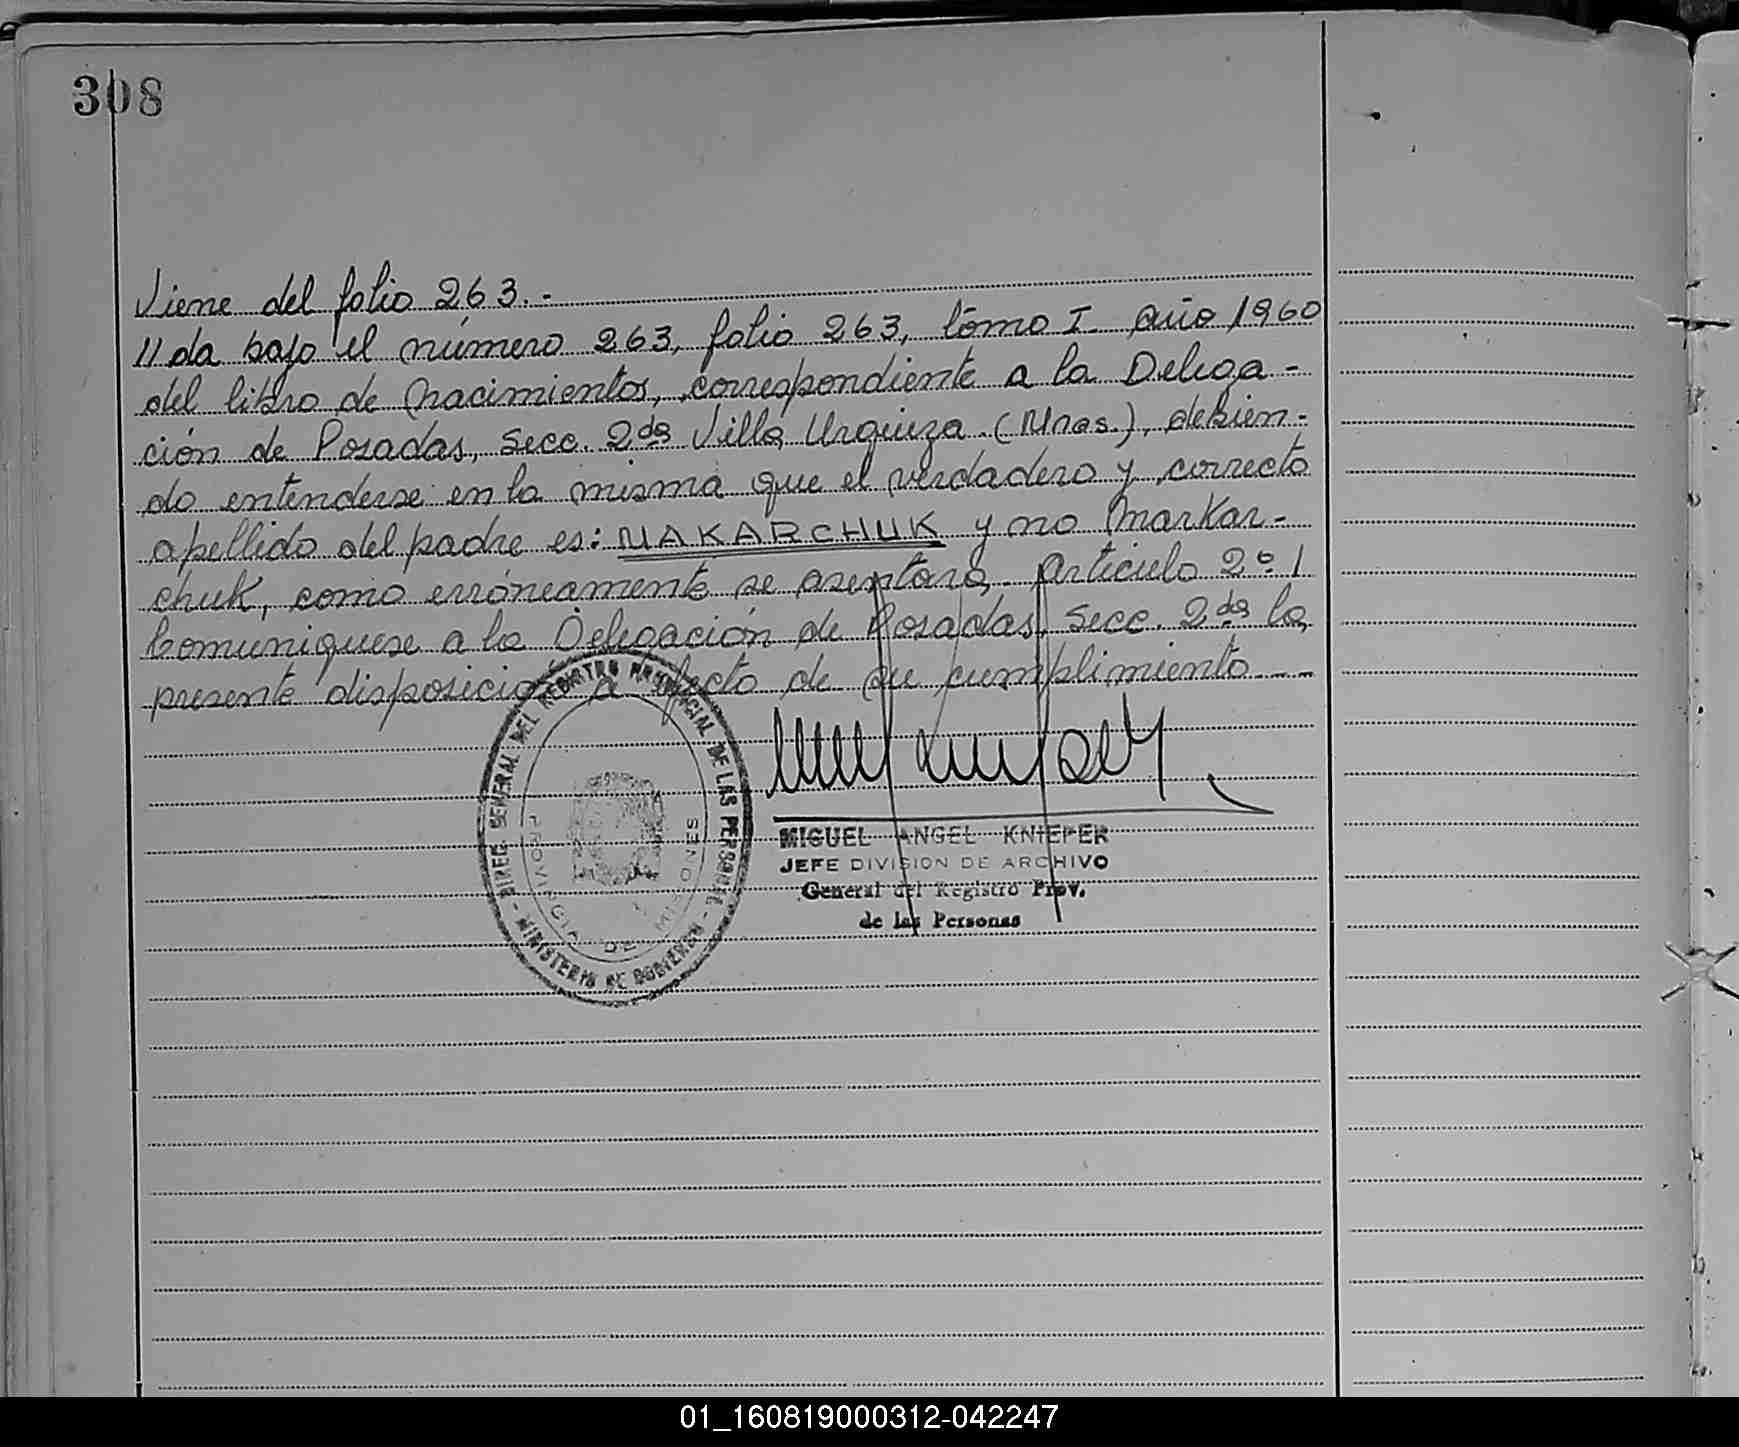 308
Viene del folio 263.-
//da bajo el número 263, folio 263, tomo I año 1960
del libro de Nacimientos, correspondiente a la Delega-
ción de Posadas, Secc. 2da Villa Urquiza (Mnes.), debien-
do entenderse en la misma que el verdadero y correcto
apellido del padre es: MAKARCHUK y no Markar-
chuk, como erróneamente se asentara. Artículo 2º)
Comuníquese a la Delegación de Posadas, Secc. 2da la
presente disposición a efecto de su cumplimiento.--
DIREC. GENERAL DEL REGISTRO PROVINCIAL DE LAS PERSONAS
- MINISTERIO DE GOBIERNO -
PROVINCIA DE MISIONES
MIGUEL ANGEL KNIEPER
JEFE DIVISION DE ARCHIVO
General del Registro Prov.
de las Personas
01_160819000312-042247